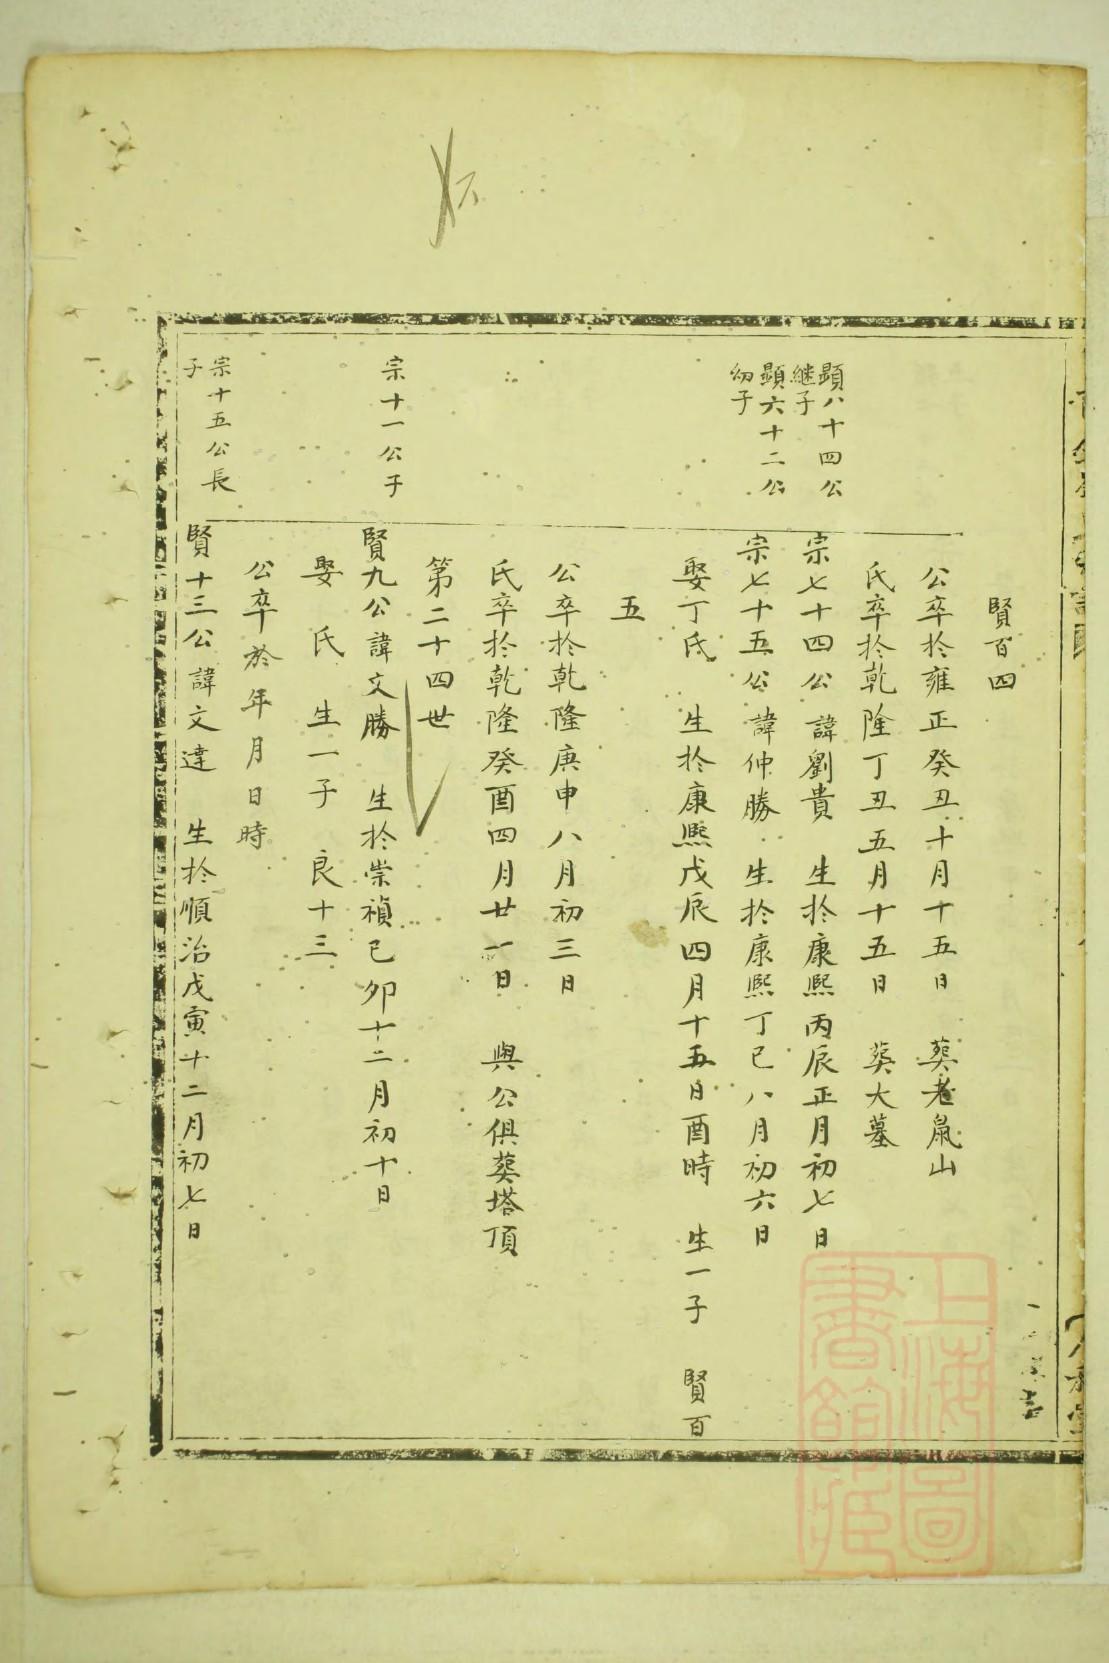 賢百四
公卒於雍正癸丑十月十五日 葬老鼠山
氏卒於乾隆丁丑五月十五日 葬大墓
顯八十四公
継子
宗七十四公 諱劉貴 生於康熙丙辰正月初七日
顯六十二公
幼子
宗七十五公 諱仲勝 生於康熙丁巳八月初六日
娶丁氏 生於康熙戊辰四月十五日酉時 生一子 賢百
五
公卒於乾隆庚申八月初三日
氏卒於乾隆癸酉四月廿一日 與公俱葬塔頂
第二十四世
宗十一公子
賢九公諱文勝 生於崇禎己卯十二月初十日
娶 氏 生一子 良十三
公卒於年月日時
宗十五公長
子
賢十三公諱文達 生於順治戊寅十二月初七日
上海圖
書館藏